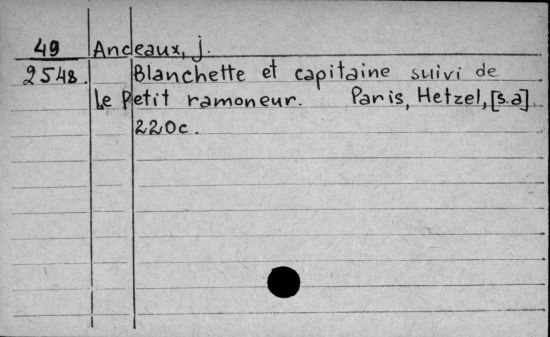 49 Anceaux, j.
2548. Blanchette et capitaine suivi de
le petit ramoneur. Paris, Hetzel, [s.a]
220c.